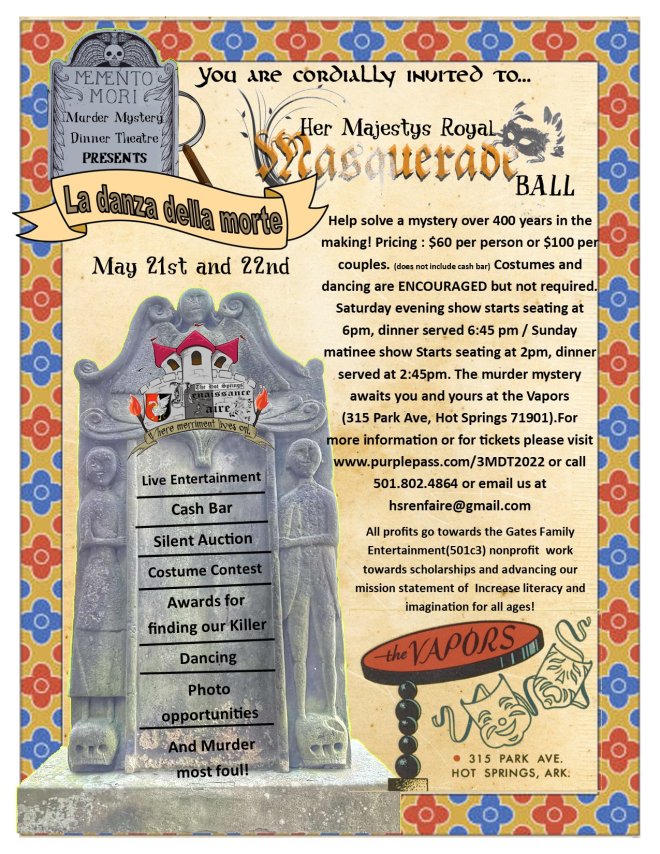 MEMENTO
MORI
Murder Mystery
Dinner Theatre
PRESENTS
You are cordially invited to...
Her Majestys Royal
Masquerade
BALL
La danza della morte
May 21st and 22nd
Help solve a mystery over 400 years in the
making! Pricing : $60 per person or $100 per
couples. (does not include cash bar) Costumes and
dancing are ENCOURAGED but not required.
Saturday evening show starts seating at
6pm, dinner served 6:45 pm / Sunday
matinee show Starts seating at 2pm, dinner
served at 2:45pm. The murder mystery
awaits you and yours at the Vapors
(315 Park Ave, Hot Springs 71901).For
more information or for tickets please visit
www.purplepass.com/3MDT2022 or call
501.802.4864 or email us at
hsrenfaire@gmail.com
All profits go towards the Gates Family
Entertainment(501c3) nonprofit work
towards scholarships and advancing our
mission statement of Increase literacy and
imagination for all ages!
The Hot Springs
Renaissance
Faire
Where merriment lives on.
Live Entertainment
Cash Bar
Silent Auction
Costume Contest
Awards for
finding our Killer
Dancing
Photo
opportunities
And Murder
most foul!
the VAPORS
315 PARK AVE.
HOT SPRINGS, ARK.